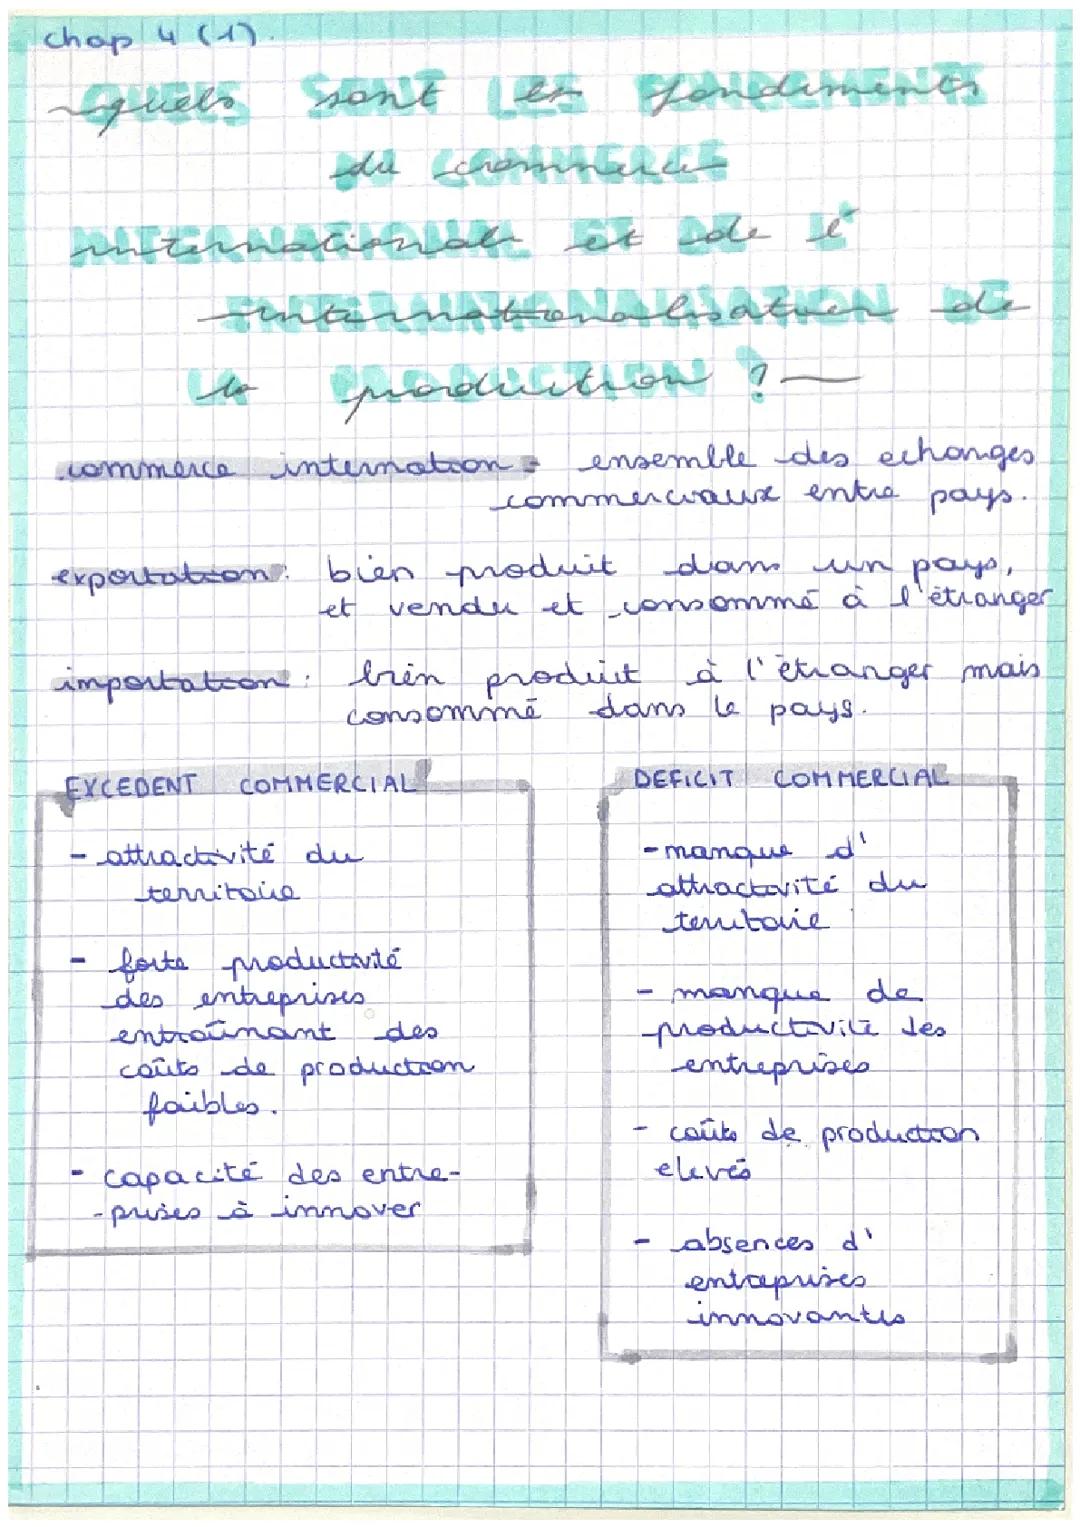 chap 4 (1).
quels sont les fondements
du commerce
international et de l'
internationalisation de
la production ?
commerce internation : ensemble des echanges
commerciaux entre pays.
exportation : bien produit dans un pays,
et vendu et consommé à l'étranger
importation : bien produit à l'étranger mais
consommé dans le pays.
EXCEDENT COMMERCIAL
- attractivité du
territoire
- forte productivité
des entreprises
entraînant des
coûts de production
faibles.
- capacité des entre-
-prises à innover
DEFICIT COMMERCIAL
- manque d'
attractivité du
territoire
- manque de
productivité des
entreprises
- coûts de production
elevés
- absences d'
entreprises
innovantes